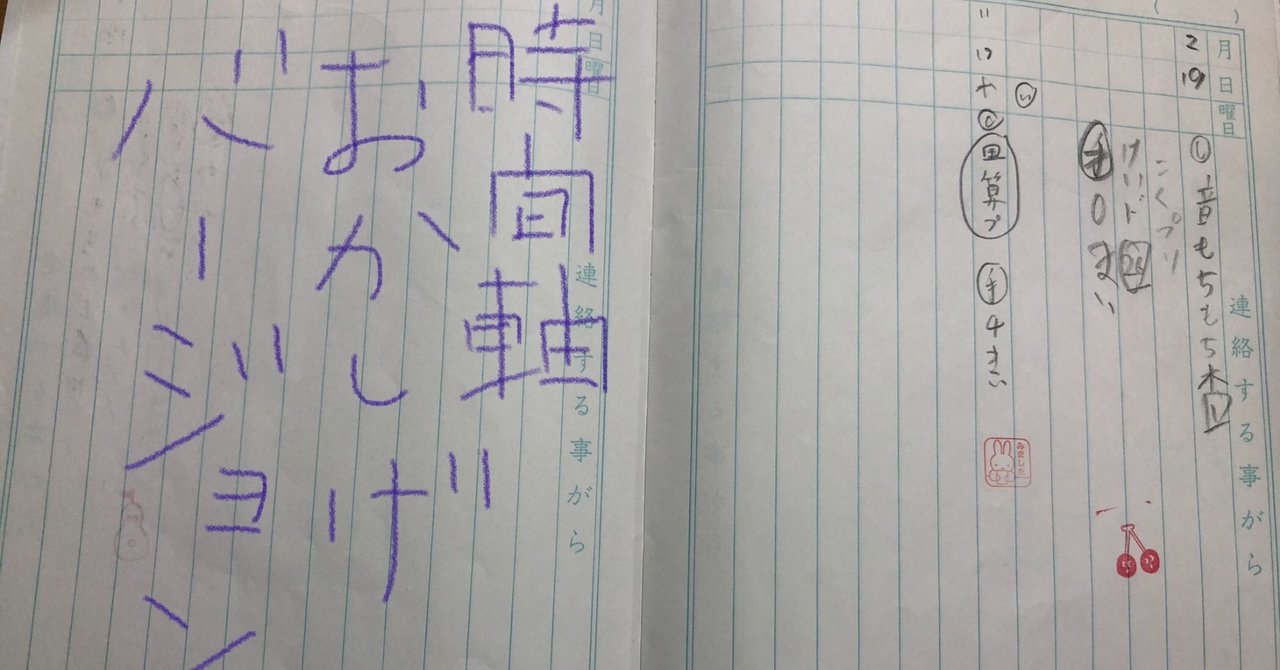 月日曜日 連絡する事がら
2 19
①音もちもち木1
こくプリ
けいド
手0まい
い
算プ 手4まい
みました
月日曜日 連絡する事がら
時間軸
おかしげ
バージョン